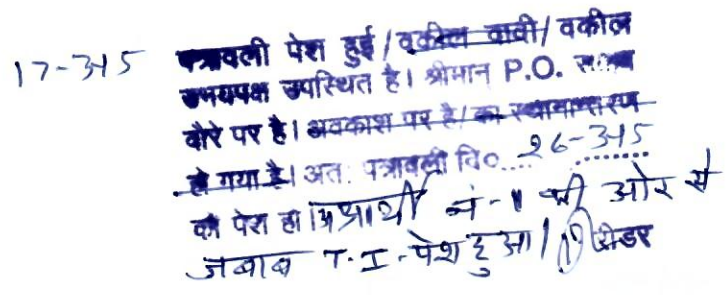 17-3-15 पत्रावली पेश हुई / वकील वादी / वकील
उभयपक्ष उपस्थित है। श्रीमान P.O.
दौरे पर है। अवकाश पर है। का स्थानान्तरण
हो गया है। अतः पत्रावली दि० .... 26-3-15
को पेश हो। अप्रार्थी नं-11 की ओर से
जबाब T.I. पेश हुआ। रीडर